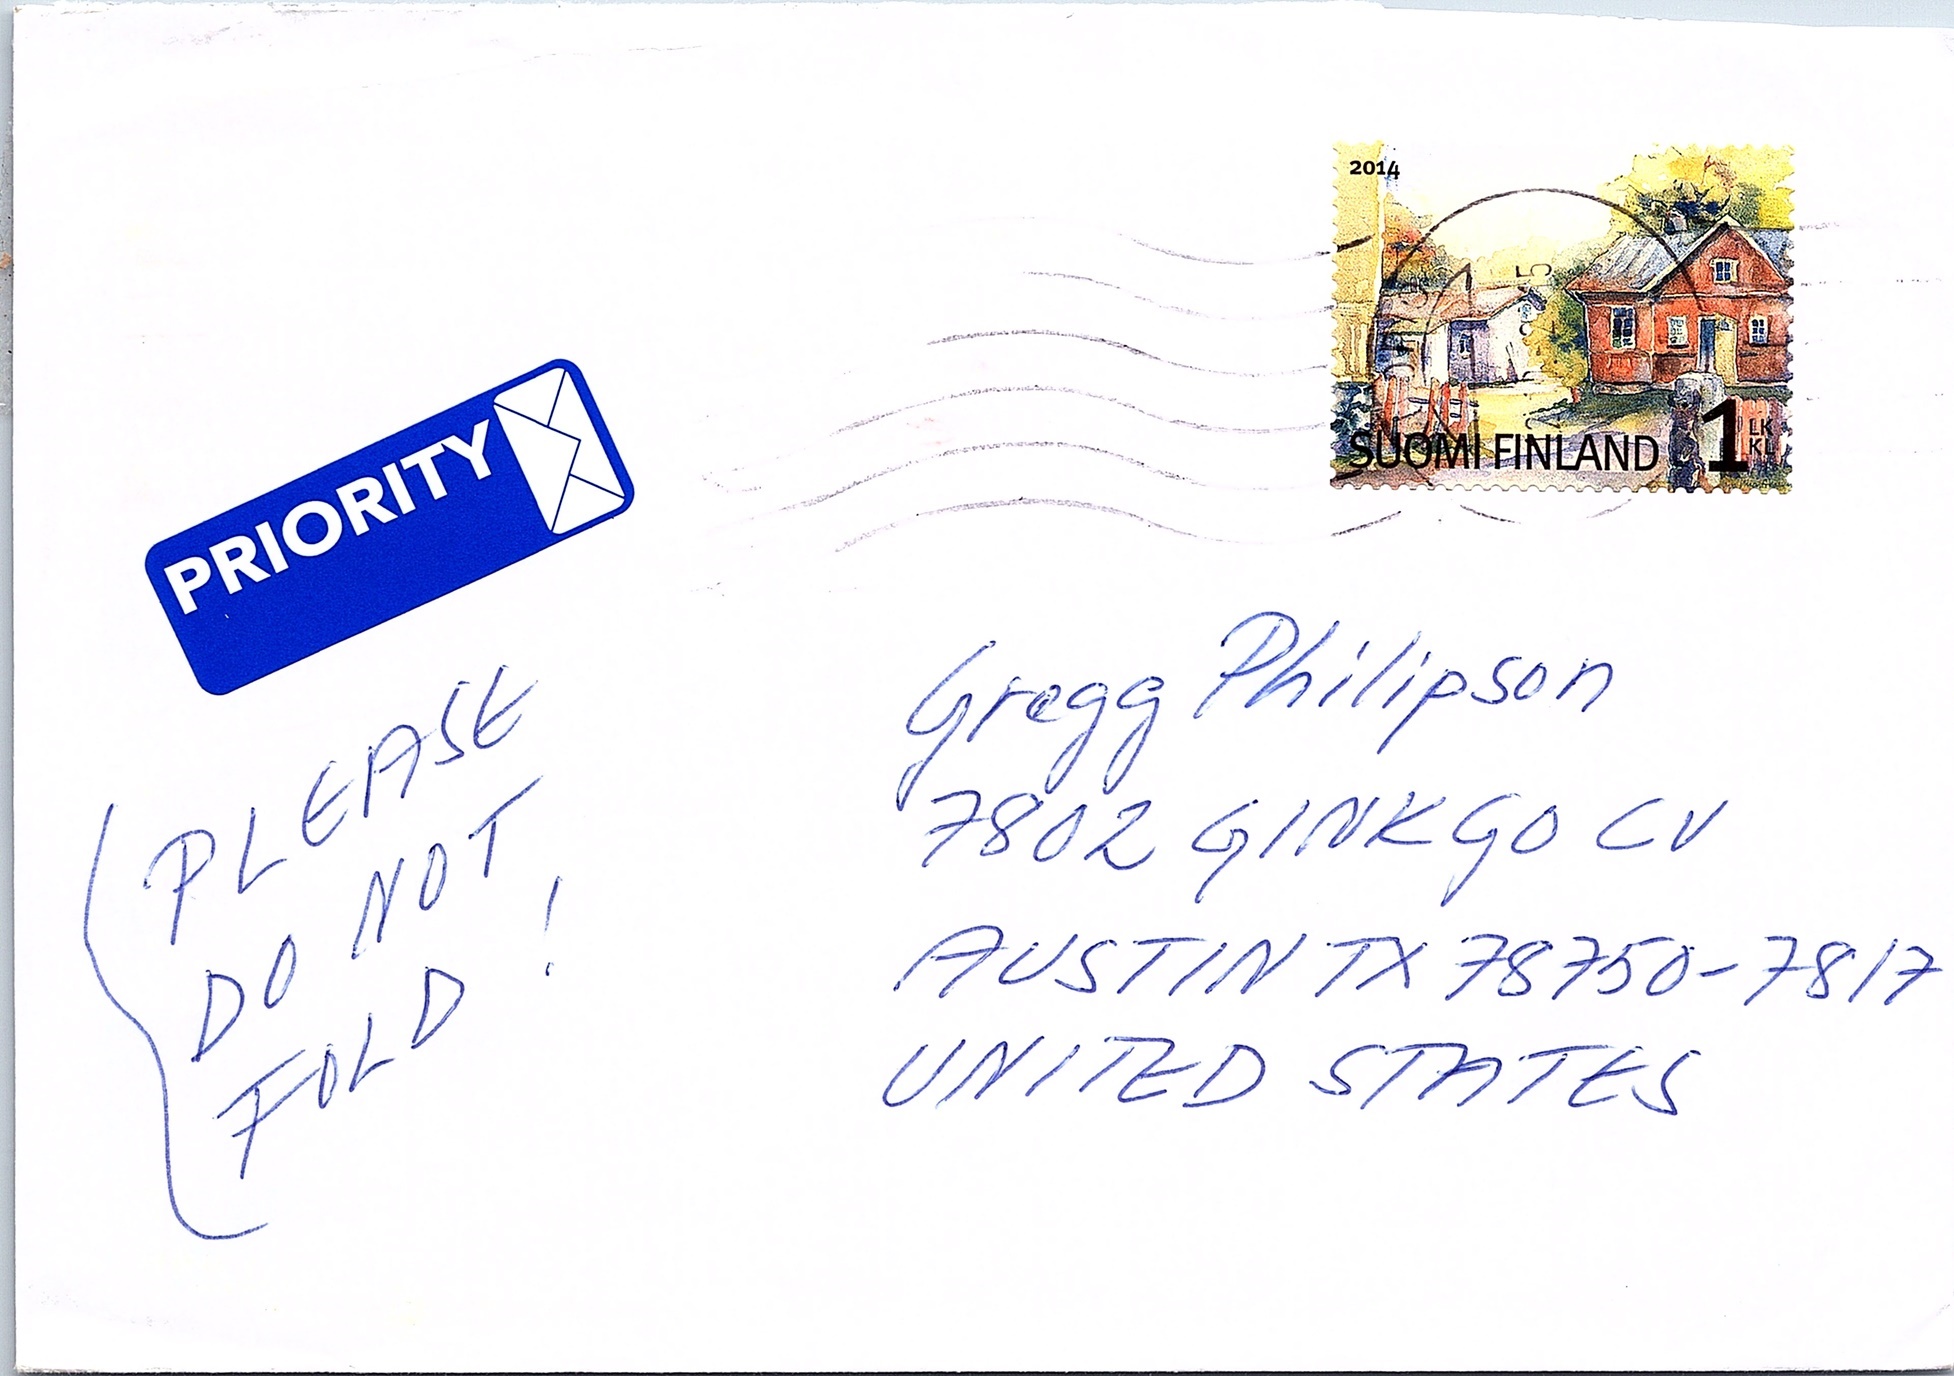 2014
SUOMI FINLAND 1 LK KL
PRIORITY
PLEASE
DO NOT
FOLD !
Gregg Philipson
7802 GINKGO CV
AUSTIN TX 78750-7817
UNITED STATES